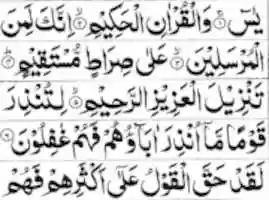 يٰسٓ ۝١ وَالْقُرْاٰنِ الْحَكِيْمِ ۝٢ اِنَّكَ لَمِنَ
الْمُرْسَلِيْنَ ۝٣ عَلٰى صِرَاطٍ مُّسْتَقِيْمٍ ۝٤
تَنْزِيْلَ الْعَزِيْزِ الرَّحِيْمِ ۝٥ لِتُنْذِرَ
قَوْمًا مَّاۤ اُنْذِرَ اٰبَآؤُهُمْ فَهُمْ غٰفِلُوْنَ ۝٦
لَقَدْ حَقَّ الْقَوْلُ عَلٰٓى اَكْثَرِهِمْ فَهُمْ